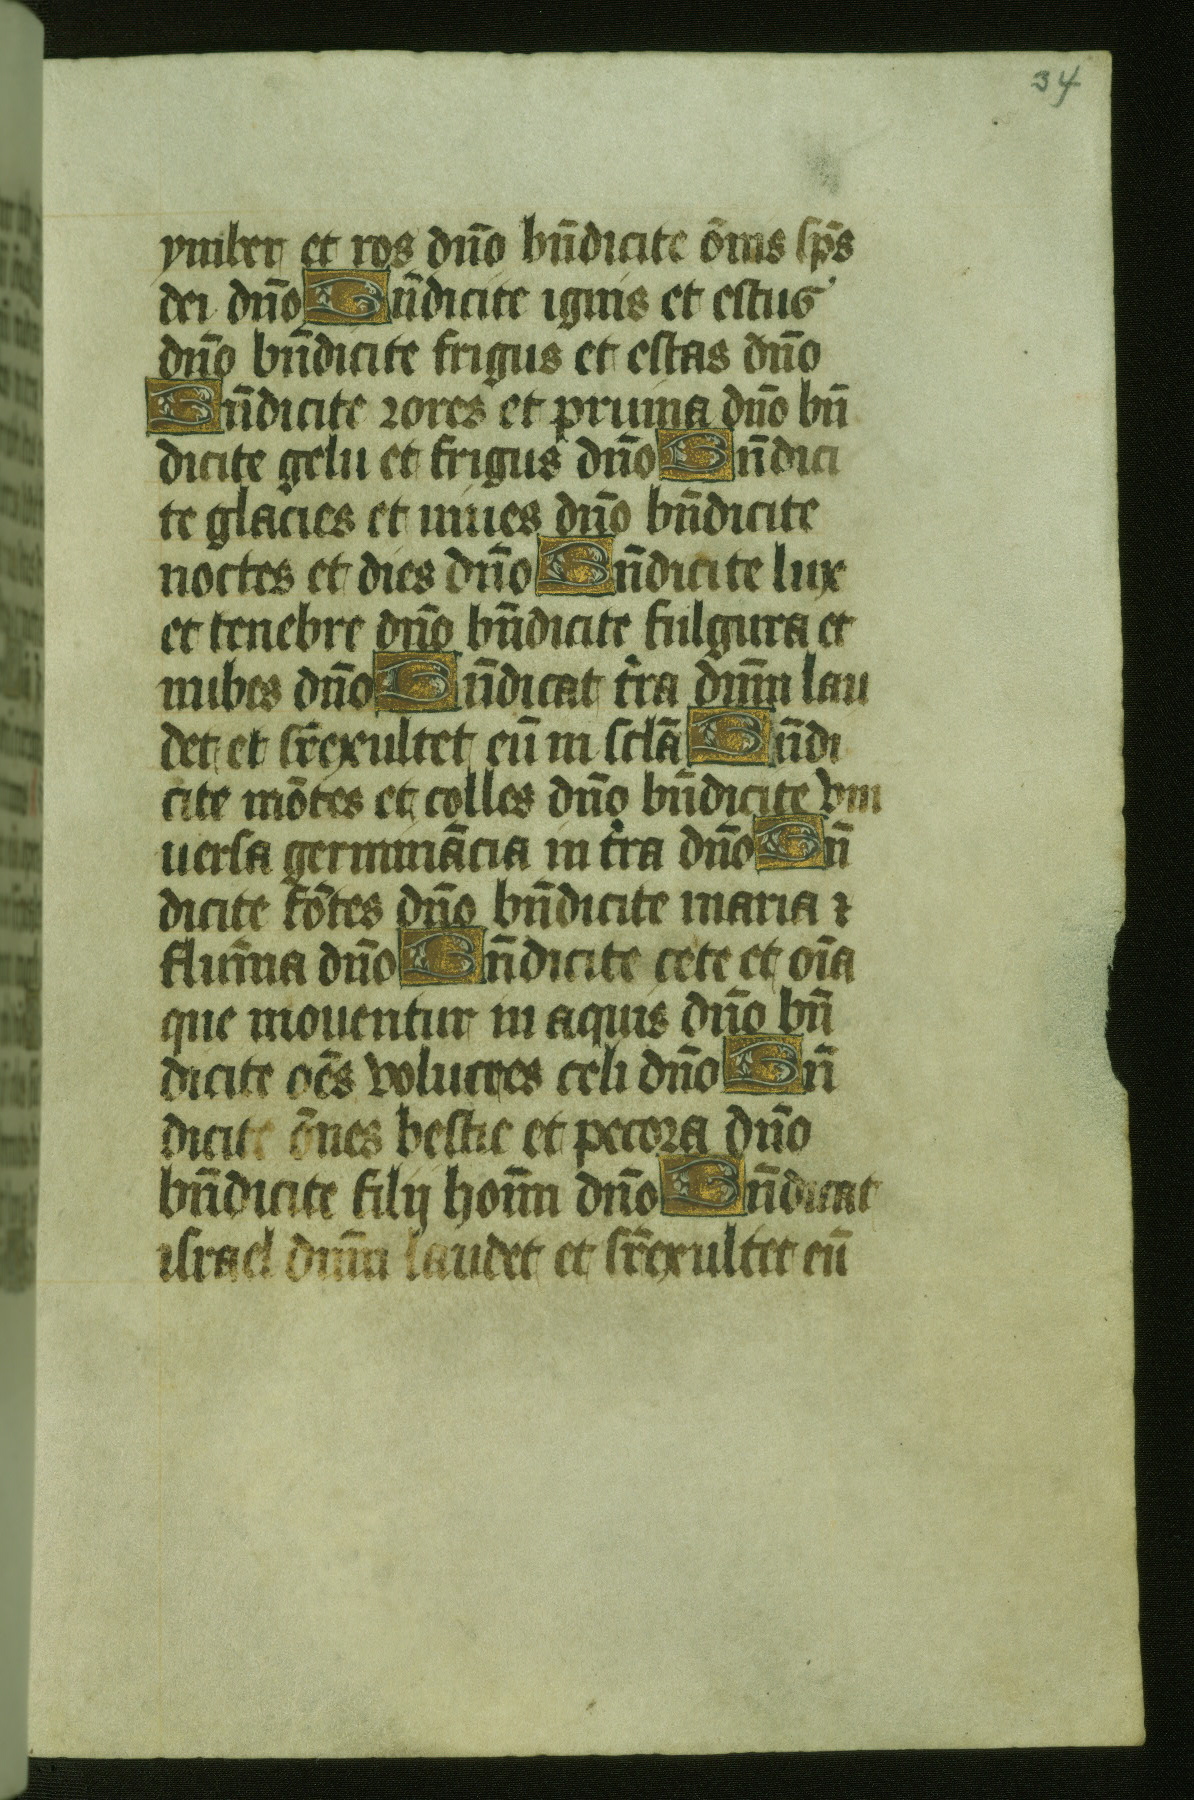 34
ymber et ros dn̄o bn̄dicite ōnis sp̄s
dei dn̄o Bn̄dicite ignis et estus
dn̄o bn̄dicite frigus et estas dn̄o
Bn̄dicite rores et pruina dn̄o bn̄
dicite gelu et frigus dn̄o Bn̄dici
te glacies et niues dn̄o bn̄dicite
noctes et dies dn̄o Bn̄dicite lux
et tenebre dn̄o bn̄dicite fulgura et
nubes dn̄o Bn̄dicat t̄ra dn̄m lau
det et sr̄exultet eū in sclā Bn̄di
cite mōtes et colles dn̄o bn̄dicite vni
uersa germinācia in t̄ra dn̄o Bn̄
dicite fōtes dn̄o bn̄dicite maria ⁊
flumīa dn̄o Bn̄dicite cete et oīa
que mouentur in aquis dn̄o bn̄
dicite oēs volucres celi dn̄o Bn̄
dicite ōnes bestie et pecora dn̄o
bn̄dicite filij hoīm dn̄o Bn̄dicat
israel dn̄m laudet et sr̄exultet eū